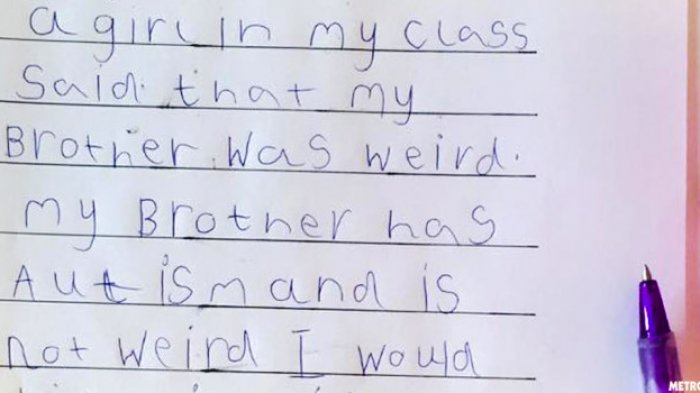 a girl in my class
Said. that my
Brother. Was weird.
my Brother has
Autism and is
not weird I would
METRO